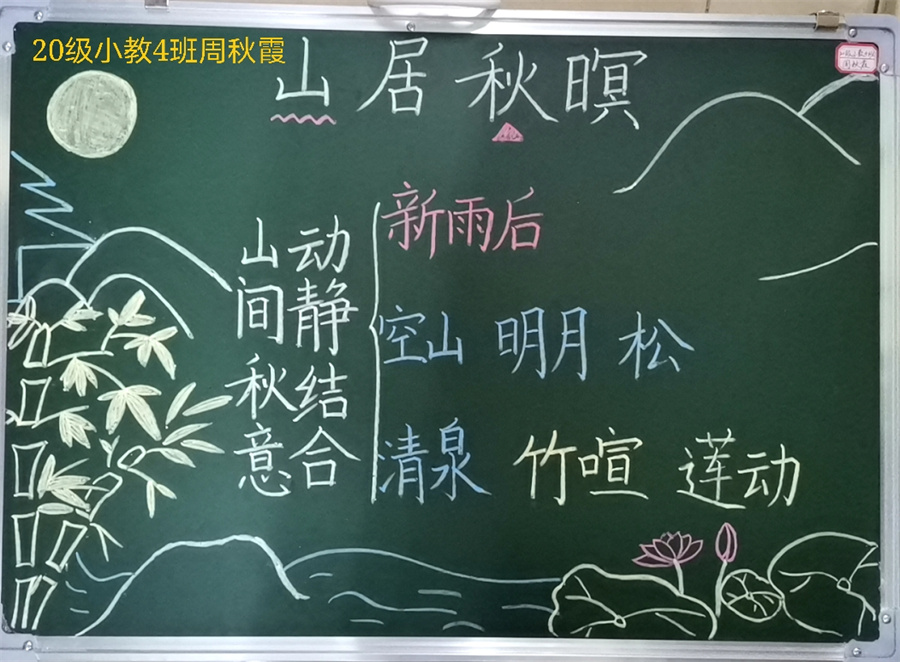 20级小教4班周秋霞
山居秋暝
山间秋意
动静结合
新雨后
空山 明月 松
清泉 竹喧 莲动
周秋霞